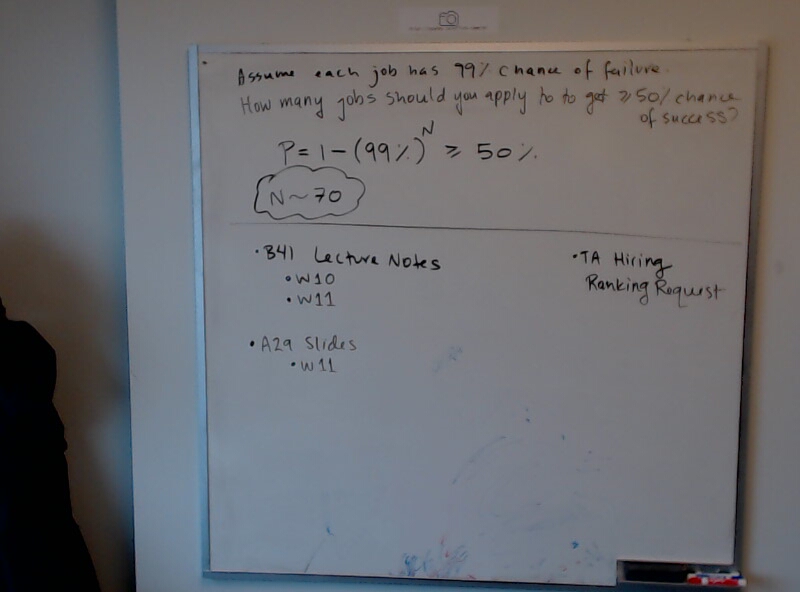 Assume each job has 99% chance of failure.
How many jobs should you apply to to get ≥50% chance
of success?
P = 1 - (99%)^N ≥ 50%.
N ~ 70
• B41 Lecture Notes
• W10
• W11
• A29 Slides
• W11
• TA Hiring
Ranking Request